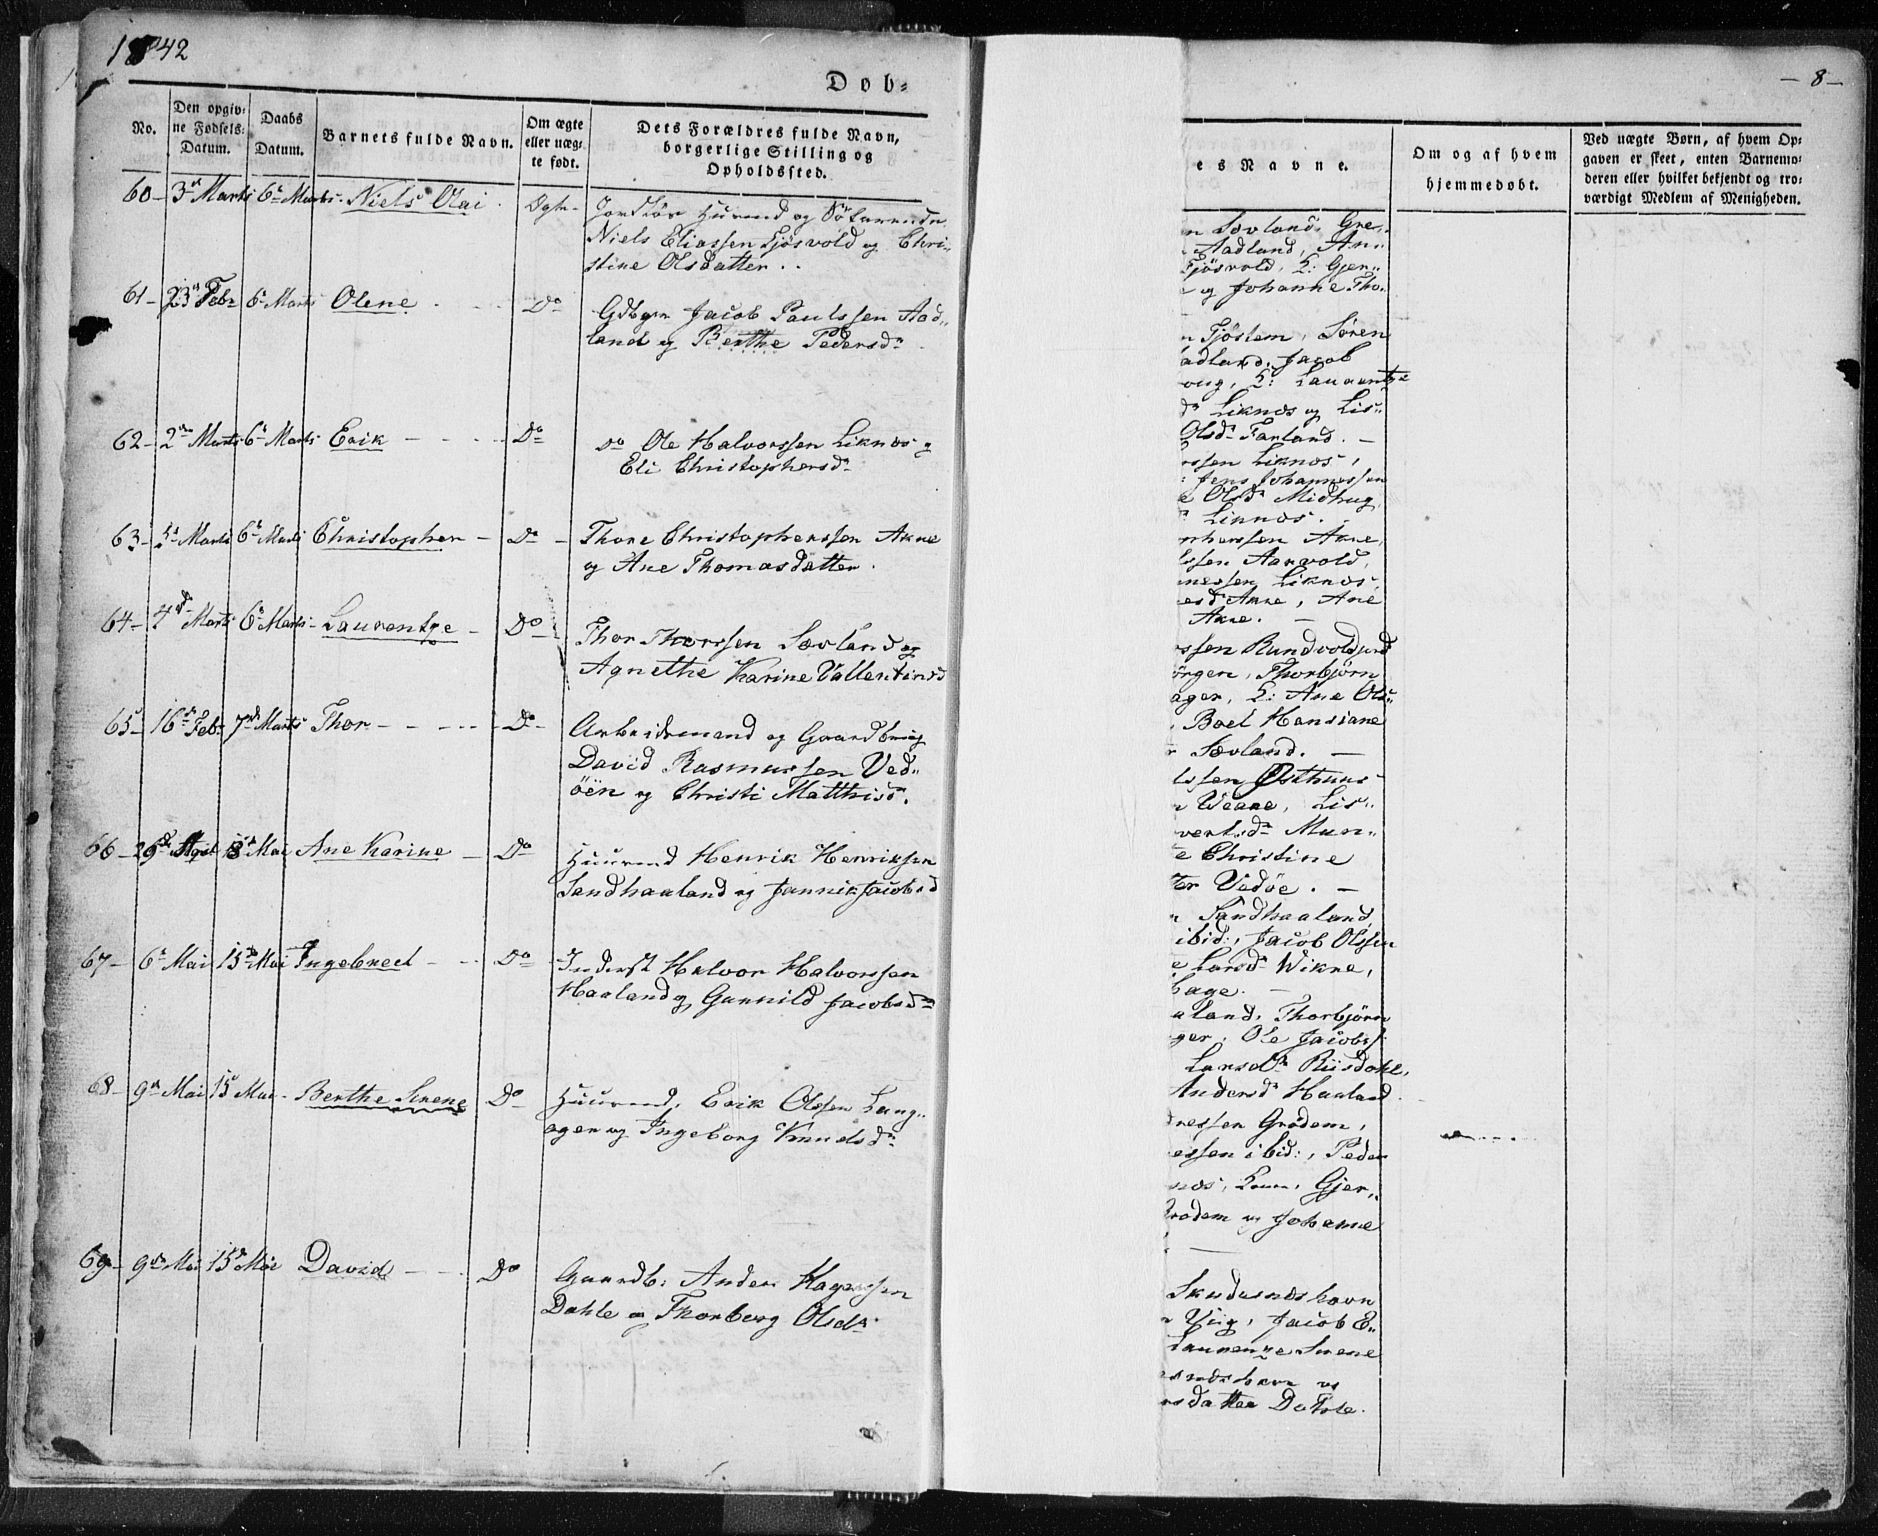 1842
Dob-
— 8 —
No.
Den opgiv-
ne Fødsels-
Datum.
Daabs
Datum.
Barnets fulde Navn.
Om ægte
eller uæg-
te født.
Dets Forældres fulde Navn,
borgerlige Stilling og
Opholdssted.
60 – 3die Marts 6te Marts. Niels Olai. Ægte.
Jordløs Huusmd og
Niels Eliassen Tjøsvold og Chri-
stine Olsdatter.
61 – 23de Febr 6te Marts Olene Do
Gdbgr Jacob Paulssen Aad-
land og Berthe Pedersdr
62 – 2den Marts 6te Marts Erik Do
Do Ole Halvorssen Liknes og
Eli Christophersdr
63 – Marts 6te Marts Christopher – Do –
Thore Christophersen Akre
og Ane Thomasdatter.
64 – 4de Marts 6te Marts – Laurentze – Do
Thor Thorssen Sævland og
Agnethe Karine Vallentinsd
65 – 16de Febr 7de Marts Thor – – – – Do –
Arbeidsmand og Gaardbrug
David Rasmussen Ved-
öën og Christi Matthisdr.
66 – 26de April 8de Mai Ane Karine – Do
Huusmd Henrik Henriksen
Sandhaaland og Jannik Jacobsd
67 – 6te Mai 15de Mai Ingebrect – – Do –
Inderst Halvor Halvorssen
Haaland og Gunnild Jacobsdr
68 – 9de Mai 15de Mai – Berthe Serene Do
Huusmd. Erik Olssen Lang-
ager og Ingeborg Knudsdr
69 – 9de Mai 15de Mai David – – Do
Gaardb: Anders
Dahle og Thorberg Olsdr
es Navne.
Om og af hvem
hjemmedøbt.
Ved uægte Børn, af hvem Op-
gaven er skeet, enten Barnemo-
deren eller hvilket bekjendt og tro-
værdigt Medlem af Menigheden.
n Sævland, Gre-
Aadland, An-
Tjösvold, Q: Gjer-
e og Johanne Tho-
n Tjöslem, Sören
adland, Jacob
oug, Q: Laurentze
dr Liknes og Lis-
Olsdr Farland. –
rssen Liknes,
: Jens Johannessen
e Olsdr Midhug
Liknes.
phersen Akre,
lssen Aarvold,
nessen Liknes,
esdr Akre, Ane
Akre. –
rssen Rundvoldjord
örgen, Thorbjörn
ager, Q: Ane Ols-
, Boel Hansiane
r Sævland. –
lssen Østhuus
r Weare, Lis-
vertsdr Mun-
e Christine
ter Vedøe. –
n Sandhaaland,
ibid:, Jacob Olssen
e Larsdr Wikre,
hage. –
aland, Thorbjörn
ger, Ole Jacobss.
Larsdtr Riisdahl,
Andersdr Haaland
dnessen Grödem,
essen ibid:, Peder
snes, Q: Gjer-
Grödem og Johanne
Skudesneshavn
n Viig, Jacob E-
Laurenze Serene
esneshavn og
rsdatter Dahle.